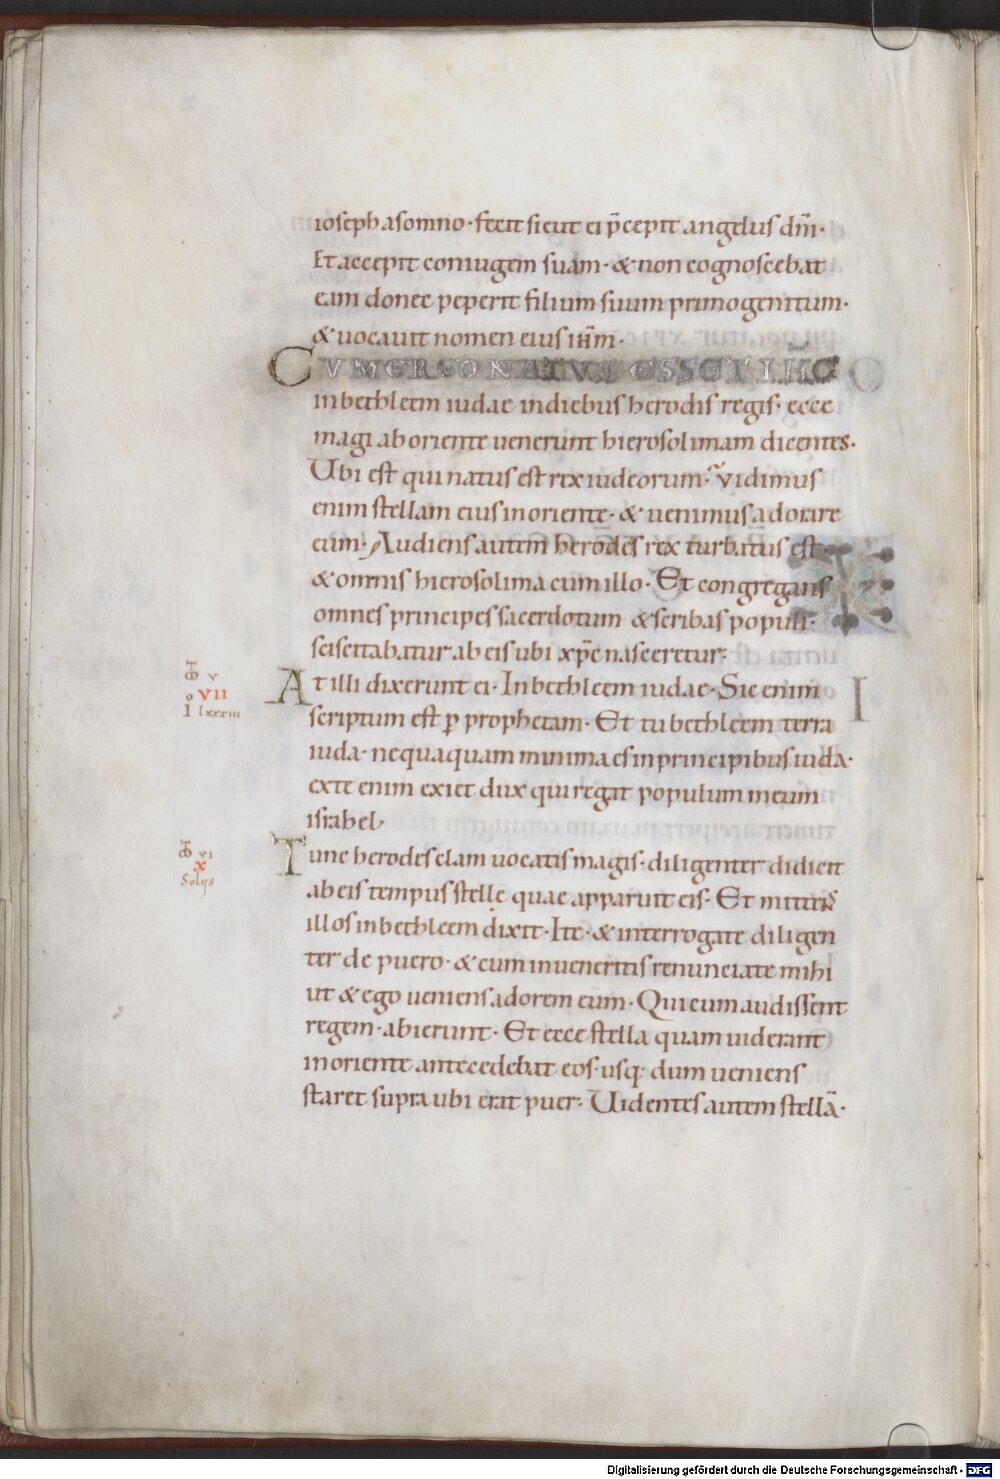 ioseph a somno · fecit sicut ei p̄cepit angelus dn̄i ·
Et accepit coniugem suam · & non cognoscebat
eam donec peperit filium suum primogenitum ·
& uocauit nomen eius ih̄m ·
CVM ERGO NATVS ESSET IH̄C
in bethleem iudae in diebus herodis regis · ecce
magi ab oriente uenerunt hierosolimam dicentes ·
Ubi est qui natus est rex iudeorum · vidimus
enim stellam eius in oriente · & uenimus adorare
eum · Audiens autem herodes rex turbatus est
& omnis hierosolima cum illo · Et congregans
omnes principes sacerdotum & scribas populi ·
sciscitabatur ab eis ubi xp̄c nasceretur :
At illi dixerunt ei · In bethleem iudae · Sic enim
scriptum est ꝑ prophetam · Et tu bethleem terra
iuda · nequaquam minima es in principibus iuda ·
ex te enim exiet dux qui regat populum meum
israhel ·
Tunc herodes clam uocatis magis · diligenter didicit
ab eis tempus stellę quae apparuit eis · Et mittens
illos in bethleem dixit · Ite · & interrogate diligen
ter de puero · & cum inueneritis renunciate mihi
ut & ego ueniens adorem eum · Qui cum audissent
regem · abierunt · Et ecce stella quam uiderant
in oriente antecedebat eos · usq; dum ueniens
staret supra ubi erat puer · Uidentes autem stellā ·
v
o VII
I lxxxiii
vi
x
Solus
Digitalisierung gefördert durch die Deutsche Forschungsgemeinschaft - DFG